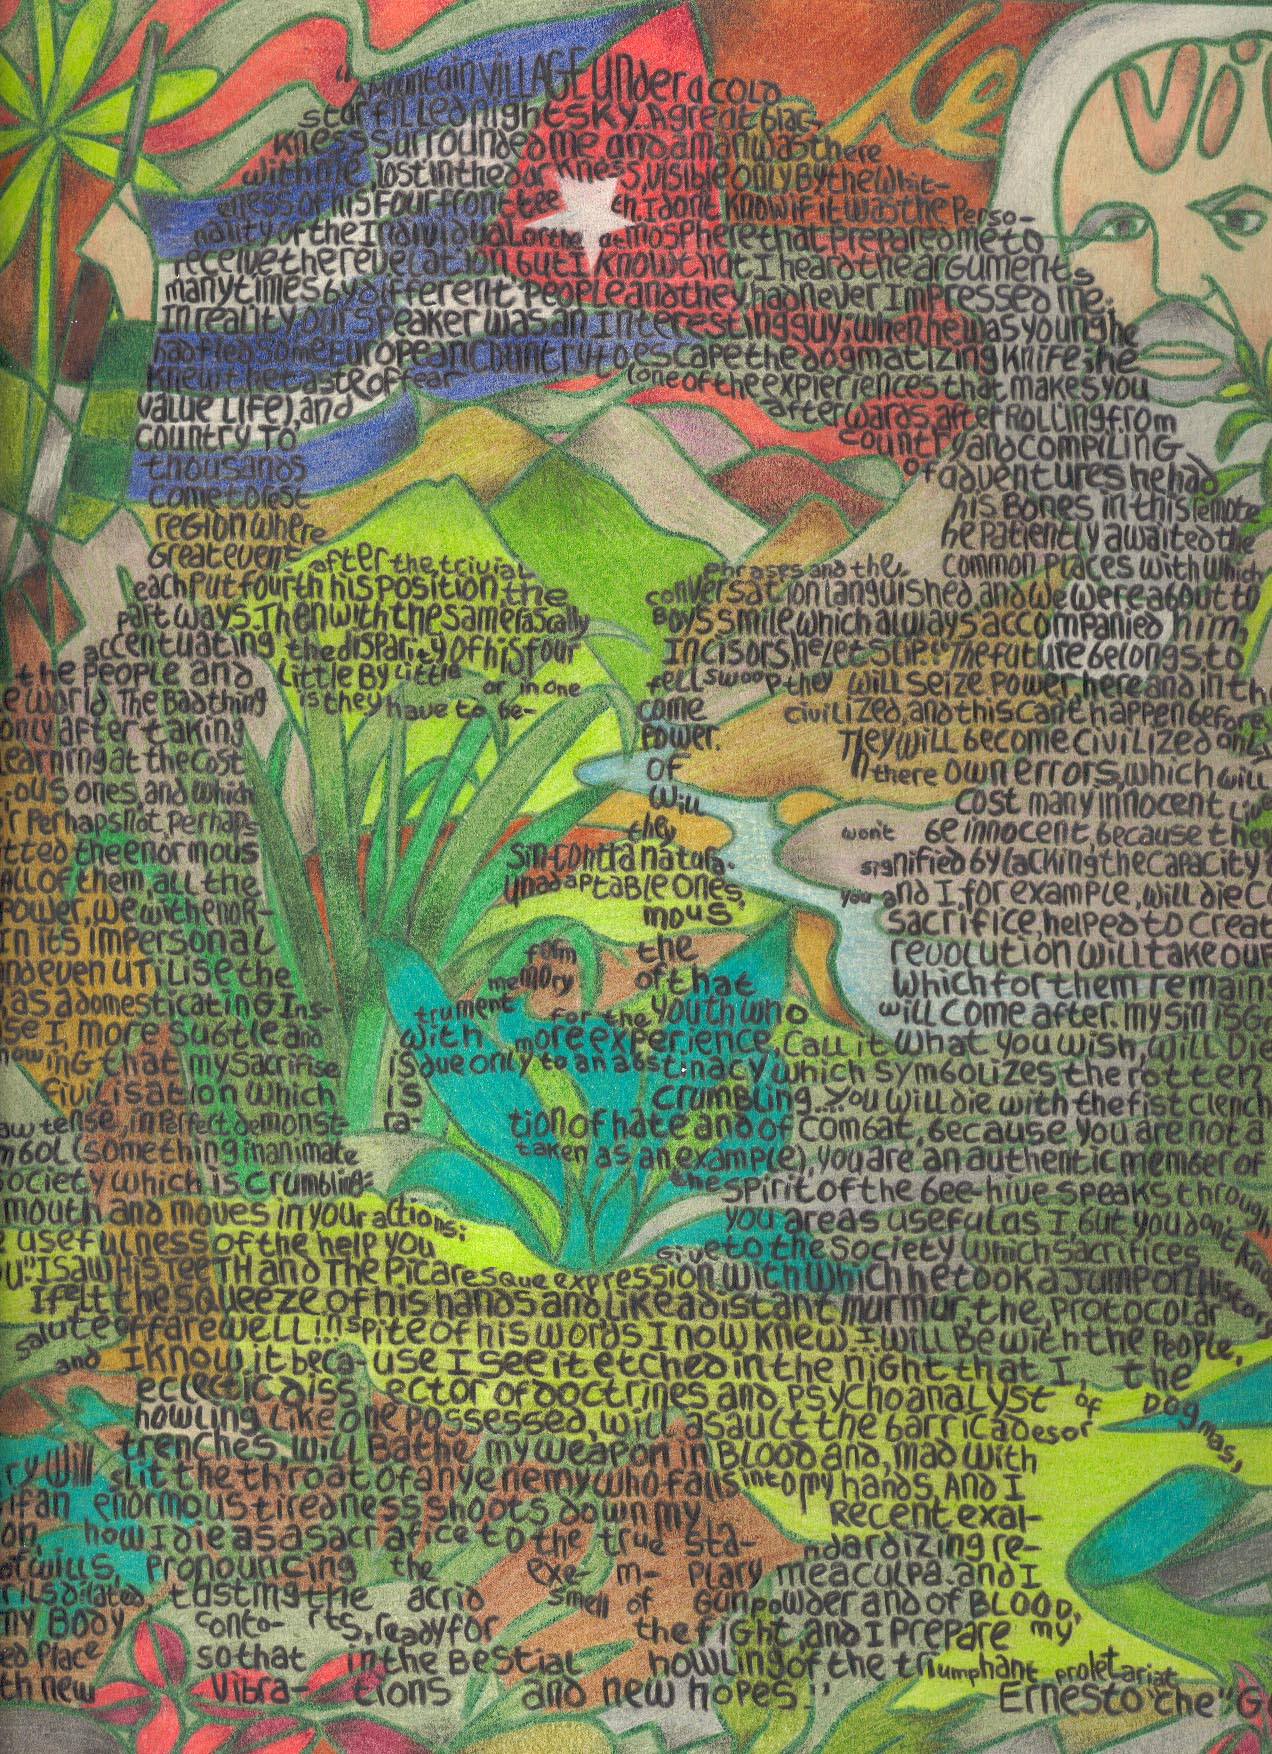 Le
Vi
"a mountain village under a cold
star filled night sky. A great blac-
kness surrounded me and a man was there
with me, lost in the dar kness, visible only by the whit-
eness of his four front tee th. I dont know if it was the perso-
nality of the Individual or the atmosphere that prepared me to
receive the revelation, but I know that I heard the arguments
many times by different people and they had never impressed me.
In reality, our speaker was an Interesting guy; when he was young he
had fled some european country to escape the dogmatizing knife; he
knew the taste of fear (one of the expieriences that makes you
value life), and afterwards, after Rolling from
country to country and compiling
thousands of adventures he had
come to rest his bones in this remote
region where he patiently awaited the
great event. after the trivial phrases and the common places with which
each put fourth his position, the conversation languished and we were about to
part ways. Then with the same rascally boys smile which always accompanied him,
accentuating the disparity of his four Incisors, he let slip: "The future belongs to
the people and little by little or in one fell swoop they will seize power, here and in th
e world. The bad thing is they have to be- come civilized, and this cant happen before
only after taking power. They will become civilized only
learning at the cost of there own errors, which will
ious ones, and which will cost many innocent live
r perhaps not, perhaps they won't be innocent, because they
tted the enormous sin contra natura. signified by lacking the capacity
All of them, all the unadaptable ones, you and I, for example, will die c
power, we with enor- mous sacrifice, helped to creat
In its impersonal form the revolution will take our
and even utilise the memory of that which for them remains
as a domesticating Ins- trument for the youth who will come after. my sin is g
se I, more subtle and with more experience, call it what you wish, will die
nowing that my sacrifise is due only to an abstinacy which symbolizes the rotten
civilisation which is crumbling... you will die with the fist clench
aw tense, in perfect demonst- ra- tion of hate and of combat, because you are not a
mbol (something inanimate taken as an example), you are an authentic member of
society which is crumbling: the spirit of the bee-hive speaks through
mouth and moves in your actions; you are as useful as I, but you don't kno
e usefulness of the help you give to the society which sacrifices
u" I saw his teeth and the picaresque expression with which he took a jump on history
I felt the squeeze of his hands and like a distant murmur, the protocolar
salute of farewell. In spite of his words I now knew... I will be with the people,
and I know it beca- use I see it etched in the night that I, the
eclectic diss ector of doctrines and psychoanalyst of dogmas,
howling like one possessed, will asault the barricades or
trenches, will bathe my weapon in blood and, mad with
ry will slit the throat of any enemy who falls into my hands. And I
if an enormous tiredness shoots down my recent exal-
on, how I die as a sacrafice to the true sta- ndardizing re-
of wills, pronouncing the exe- m- plary mea culpa. and I
rils dilated tasting the acrid smell of gunpowder and of blood,
my body conto- rts, ready for the fight, and I prepare my
ed place so that in the bestial howling of the triumphant proletariat
th new vibra- tions and new hopes."
Ernesto "the" G